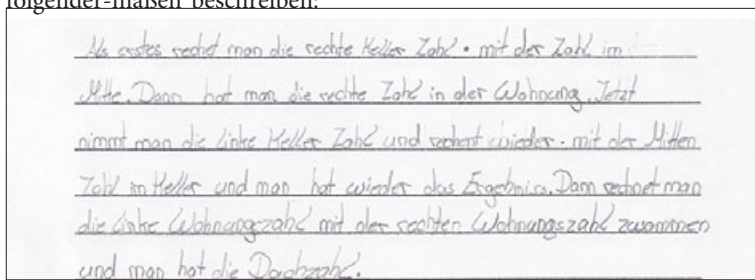 folgender-maßen beschreiben:
Als erstes rechet man die rechte Keller Zahl • mit der Zahl im
Mitte. Dann hat man die rechte Zahl in der Wohnung. Jetzt
nimmt man die linke Keller Zahl und rechent wieder • mit der Mitten
Zahl im Keller und man hat wieder das Ergebniss. Dann rechnet man
die linke Wohnungszahl mit der rechten Wohnungszahl zusammen
und man hat die Dachzahl.